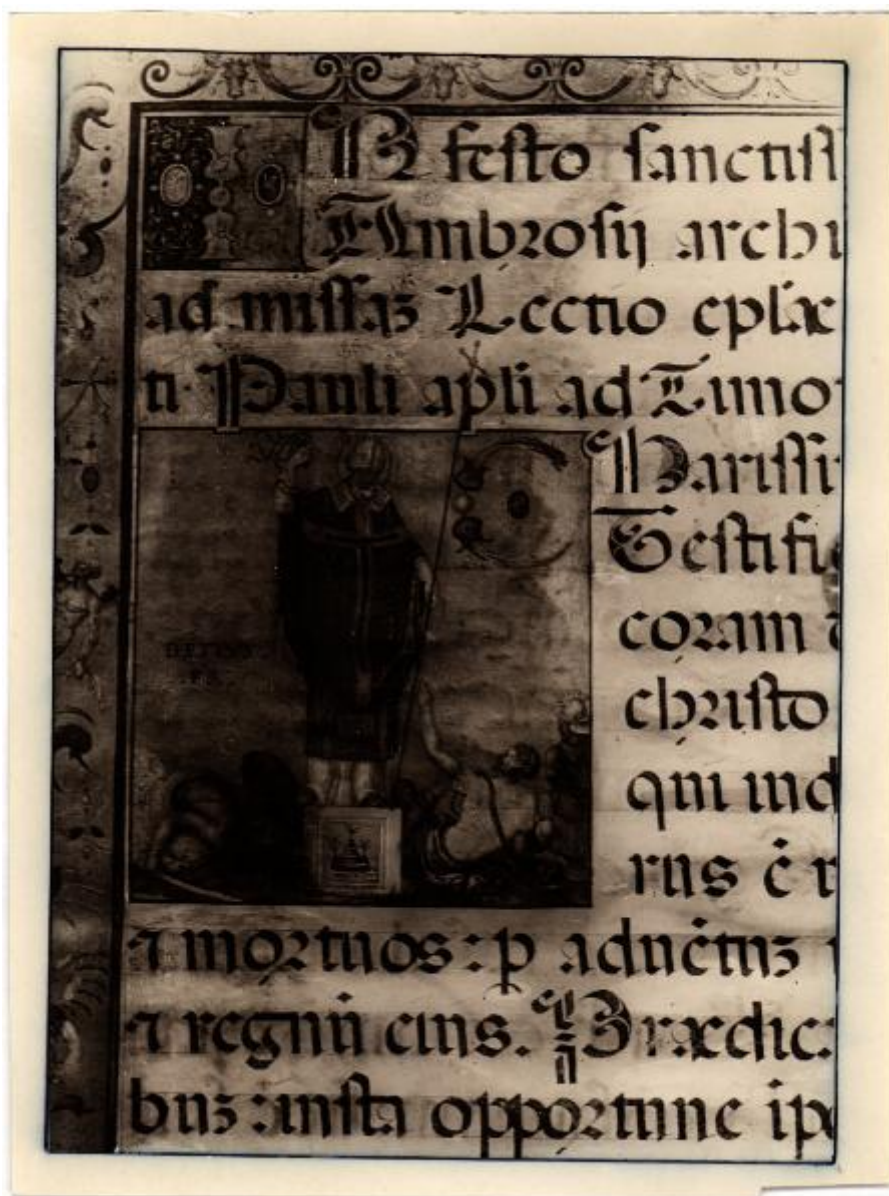 IN festo sanctiss
Ambrosij archi
ad missaz Lectio eplæ
ti Pauli apli ad Timo
Karissi
Testifi
coram
christo
qui iud
rus ē
⁊ mortuos : p aduētuz
⁊ regnū eius. Prædic
buz : insta opportune ip